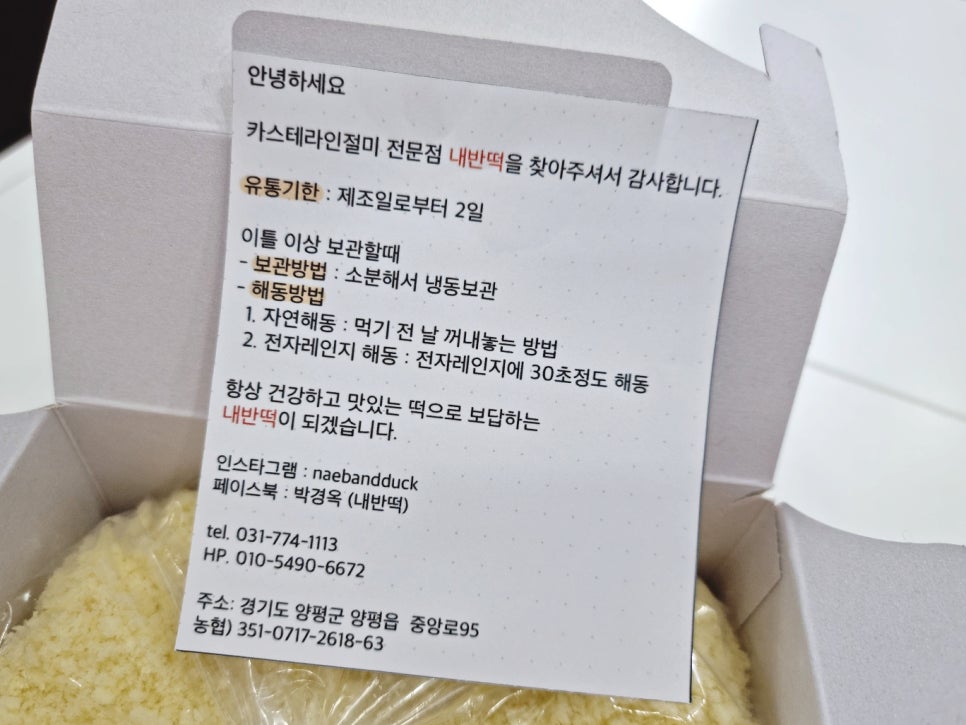 안녕하세요
카스테라인절미 전문점 내반떡을 찾아주셔서 감사합니다.
유통기한 : 제조일로부터 2일
이틀 이상 보관할때
- 보관방법 : 소분해서 냉동보관
- 해동방법
1. 자연해동 : 먹기 전 날 꺼내놓는 방법
2. 전자레인지 해동 : 전자레인지에 30초정도 해동
항상 건강하고 맛있는 떡으로 보답하는
내반떡이 되겠습니다.
인스타그램 : naebandduck
페이스북 : 박경옥 (내반떡)
tel. 031-774-1113
HP. 010-5490-6672
주소: 경기도 양평군 양평읍 중앙로95
농협) 351-0717-2618-63